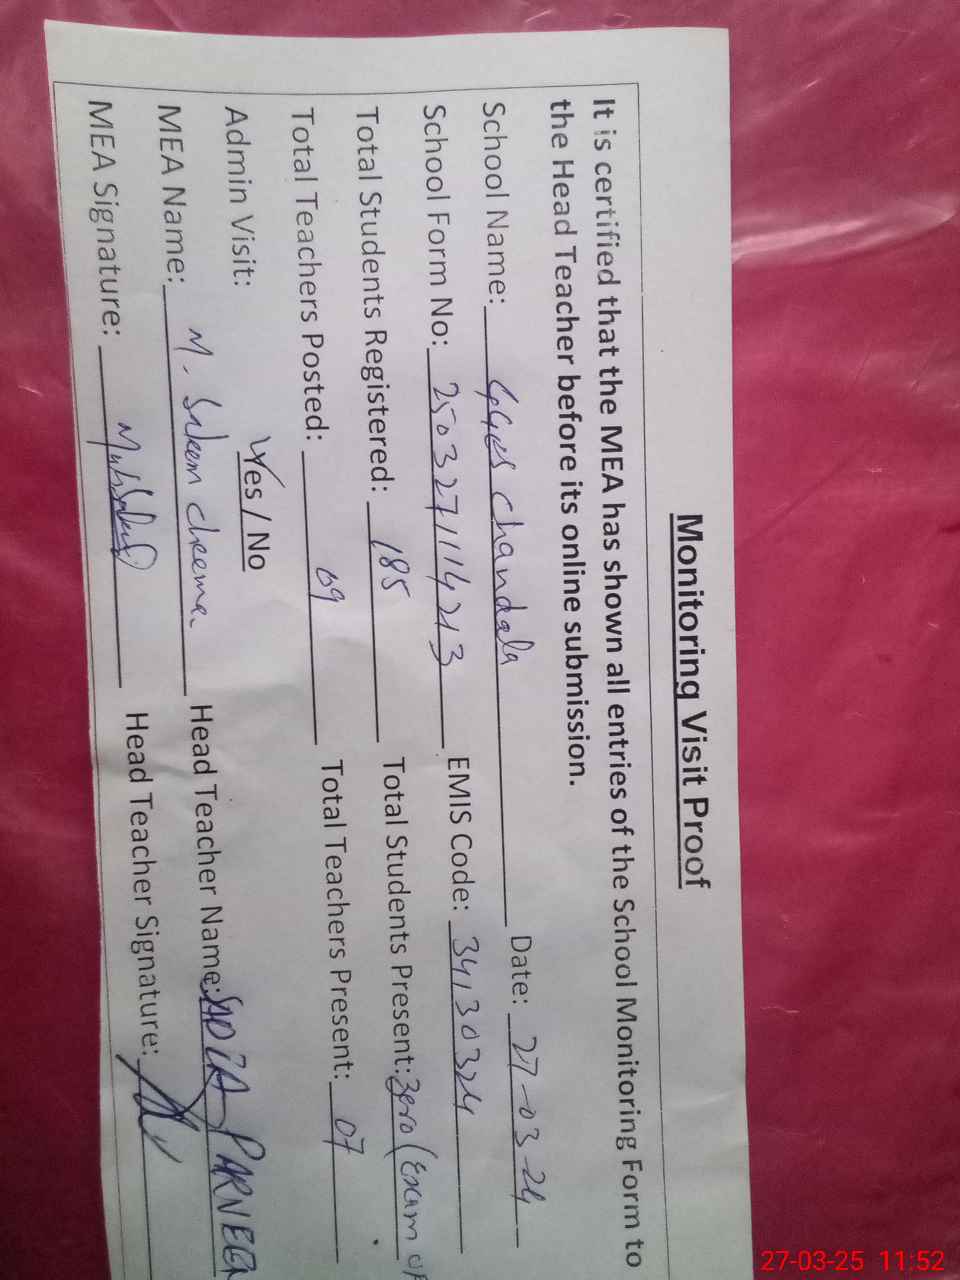 Monitoring Visit Proof
It is certified that the MEA has shown all entries of the School Monitoring Form to
the Head Teacher before its online submission.
School Name: GGES Chandala Date: 27-03-24
School Form No: 2503271114213 EMIS Code: 34130324
Total Students Registered: 185 Total Students Present: Zero (Exam
Total Teachers Posted: 09 Total Teachers Present: 07
Admin Visit: Yes / No
MEA Name: M. Saleem cheema Head Teacher Name: SADIA PARVEEN
MEA Signature: Head Teacher Signature:
27-03-25 11:52